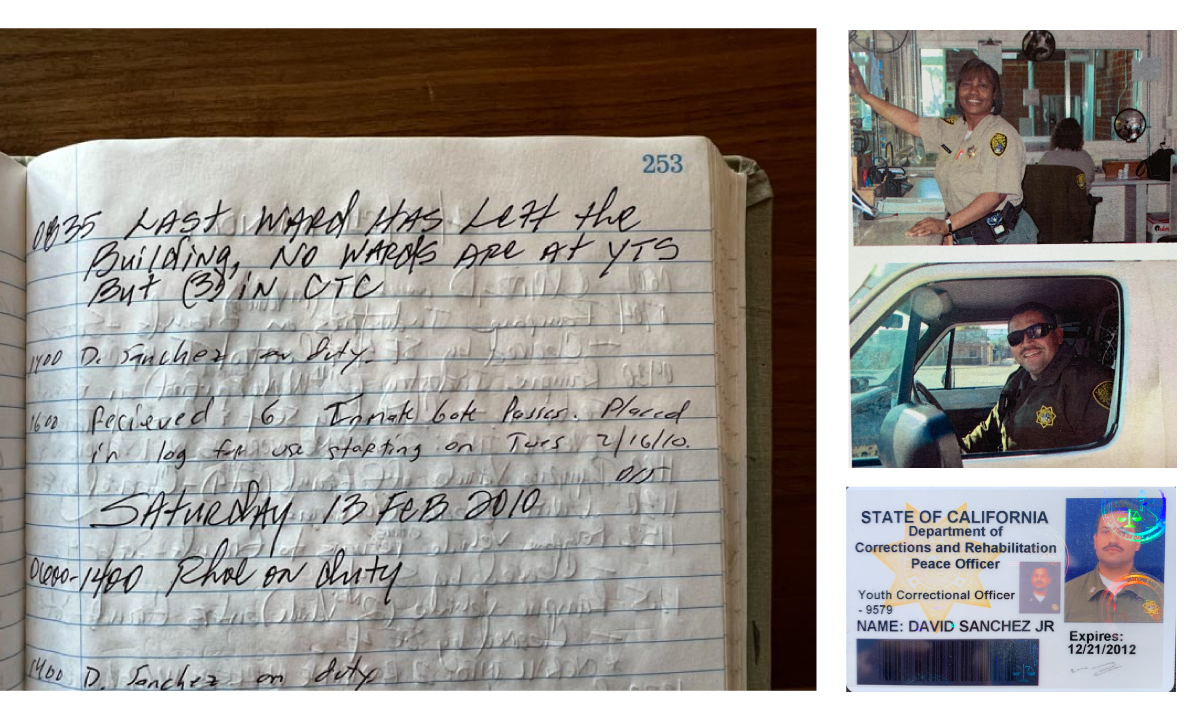 253
0835 LAST WARD HAS Left the
Building, NO WARDS ARE At YTS
But (3) iN CTC
1400 D. Sanchez on duty.
1600 Recieved 6 Inmate Gate Passes. Placed
in log for use starting on Tues 2/16/10.
SAturdAy 13 FeB 2010
0600-1400 on duty
1400 D. Sanchez on duty
STATE OF CALIFORNIA
Department of
Corrections and Rehabilitation
Peace Officer
Youth Correctional Officer
- 9579
NAME: DAVID SANCHEZ JR
Expires:
12/21/2012